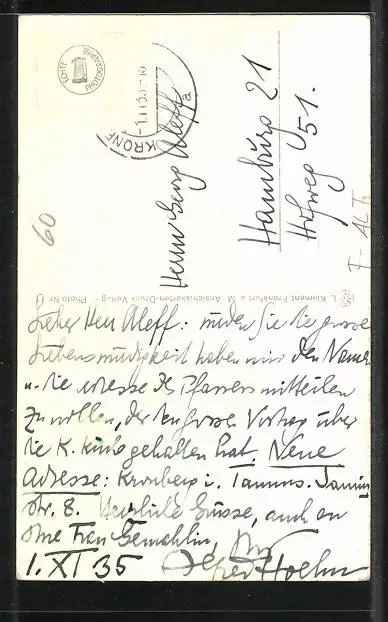 ECHTE PHOTOGRAPHIE
KRONE
Herrn Georg Aleff
Hamburg 21
Hofweg 51.
60
F-ALT
L. Klement, Frankfurt a. M. Ansichtskarten-Druck Verlag - Photo Nr
Lieber Herr Aleff: würden Sie die grosse
Liebenswürdigkeit haben mir den Namen
u. die Adresse des Pfarrers mitteilen
zu wollen, der den grossen Vortrag über
die K. gehalten hat. Neue
Adresse: Kronberg i. Taunus.
str. 8. Herzliche Grüsse, auch an
Ihre Frau Gemahlin, Ihr
1. XI 35 Alfred Hoehn